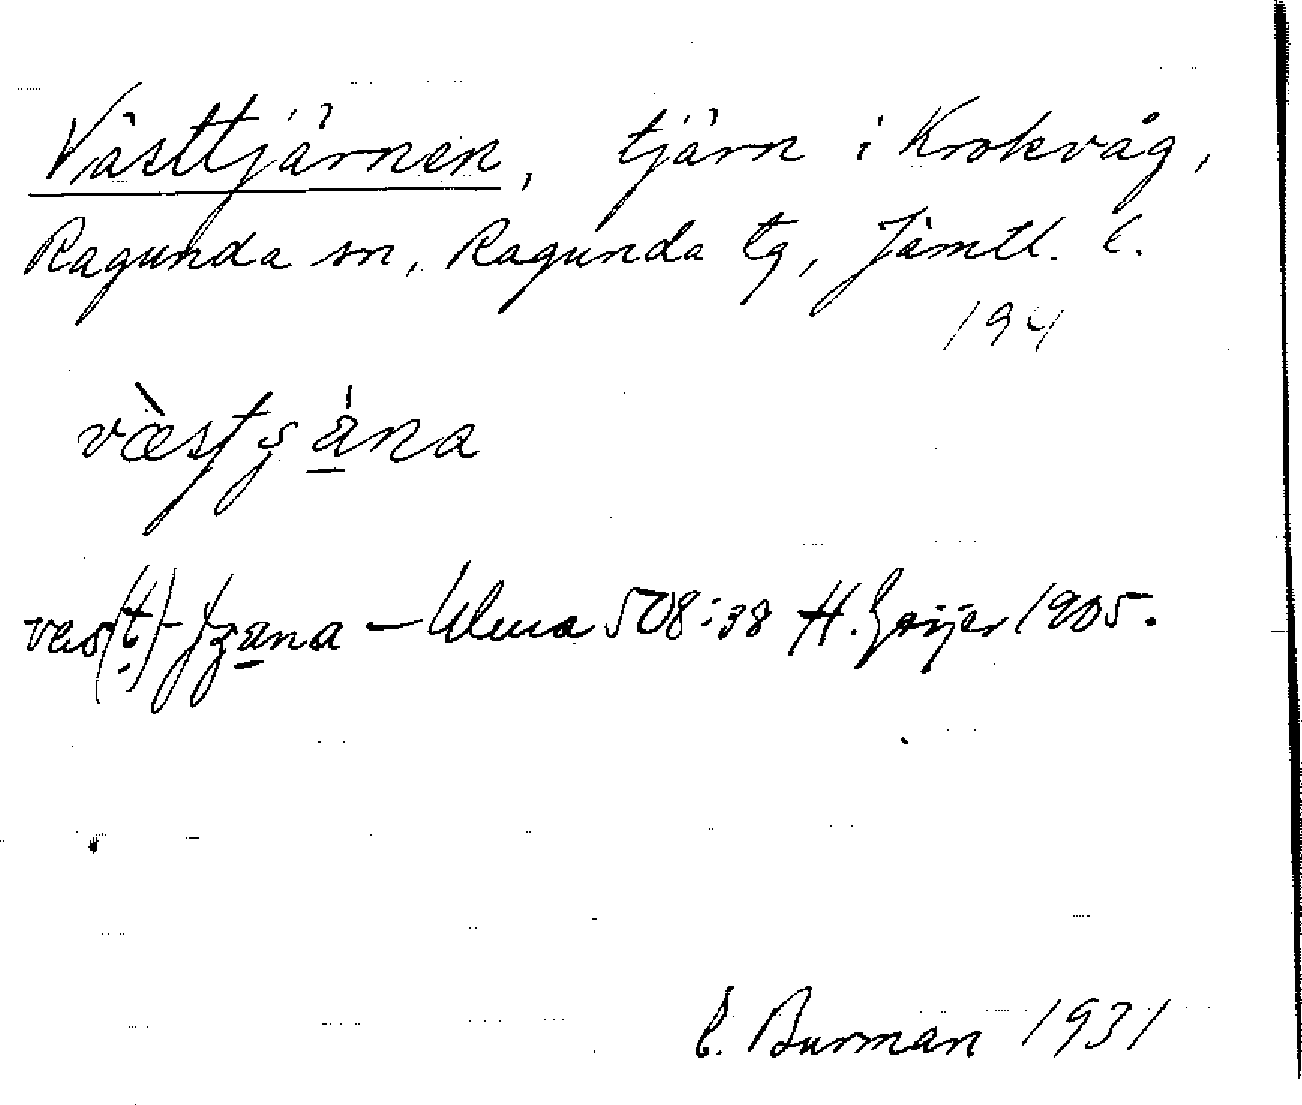 Västtjärnen, tjärn i Krokvåg,
Ragunda sn, Ragunda tg, Jämtl. l.
194
væ̀stʃána
ves(t)-ʃʒana – Ulma 508:38 H. Geijer 1905.
E. Burman 1931